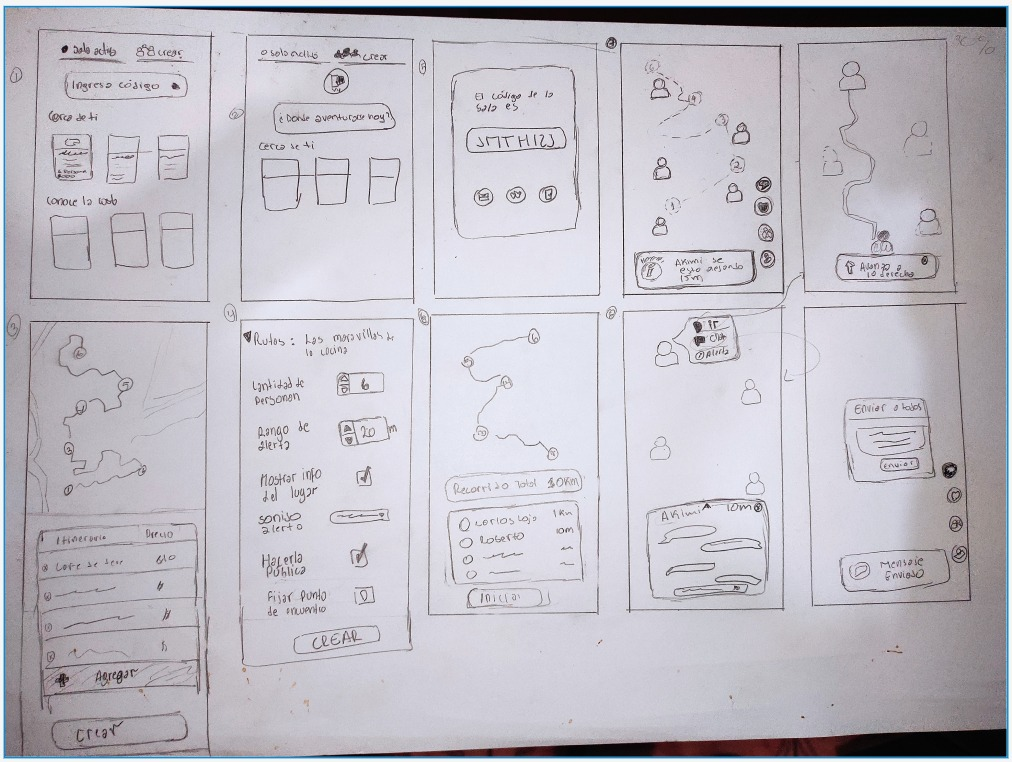 1
Sala activa
crear
Ingresa código
Cerca de ti
Conoce la web
2
Sala activa
crear
¿Donde aventurarse hoy?
Cerca de ti
El código de la
sala es
6
4
3
2
1
Akimi se
esta alejando
15m
Avanza a
la derecha
3
6
5
4
2
1
Itinerario
Precio
Agregar
Crear
4
Rutas: Las maravillas de
la cocina
Cantidad de
personas
6
Rango de
alerta
20 m
Mostrar info
del lugar
Sonido
alerta
Hacerla
Publica
Fijar Punto
de encuentro
CREAR
6
Recorrido Total 30Km
Carlos Lojo 1Km
Roberto 10m
Iniciar
Ir
Chat
Alerta
Akimi 10m
Enviar a todos
enviar
Mensaje
Enviado